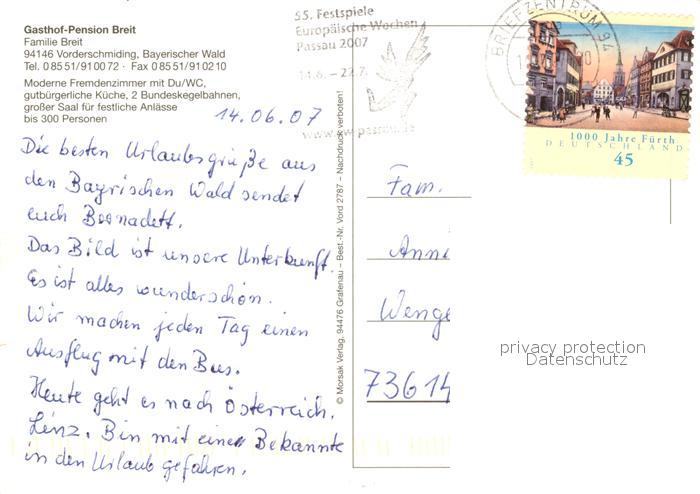 Gasthof-Pension Breit
Familie Breit
94146 Vorderschmiding, Bayerischer Wald
Tel. 0 85 51/9 10 07 2 · Fax 0 85 51/91 02 10
Moderne Fremdenzimmer mit Du/WC,
gutbürgerliche Küche, 2 Bundeskegelbahnen,
großer Saal für festliche Anlässe
bis 300 Personen
14.06.07
Die besten Urlaubsgrüße aus
den Bayrischen Wald sendet
euch Bernadett.
Das Bild ist unsere Unterkunft.
Es ist alles wunderschön.
Wir machen jeden Tag einen
Ausflug mit den Bus.
Heute geht es nach Österreich.
Linz. Bin mit einer Bekannte
in den Urlaub gefahren.
© Morsak Verlag, 94476 Grafenau – Best.-Nr. Vord 2787 – Nachdruck verboten!
55. Festspiele
Europäische Wochen
Passau 2007
14.6. - 22.7.
BRIEFZENTRUM 94
1000 Jahre Fürth
DEUTSCHLAND
45
Fam.
Anne
Wenge
73614
privacy protection
Datenschutz